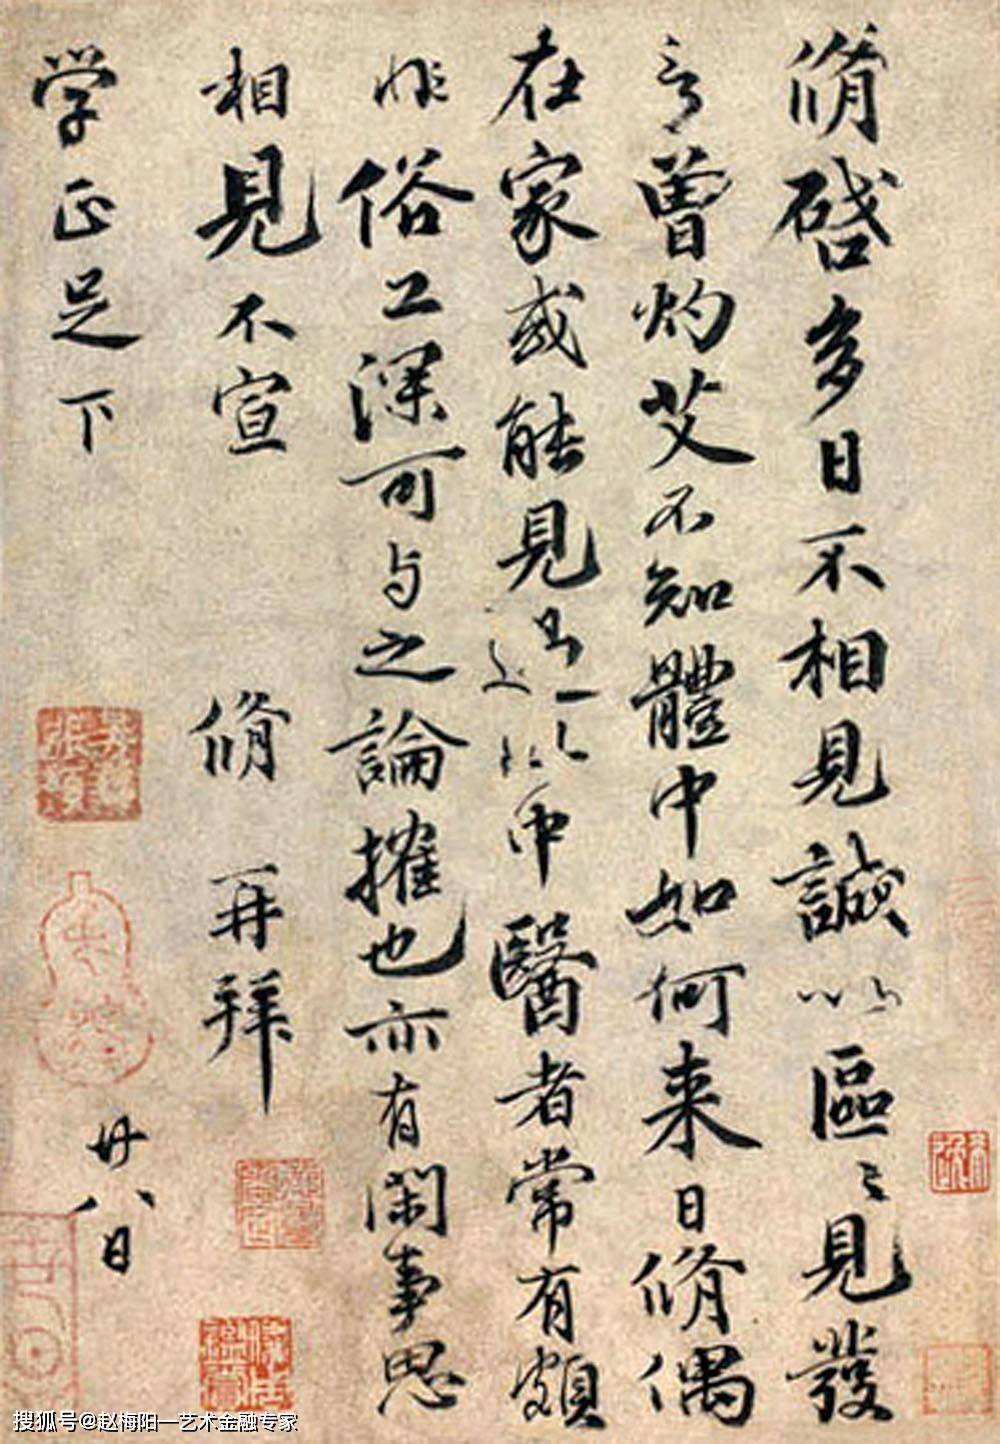 脩啓多日不相見誠以區〻見發
言曾灼艾不知體中如何来日脩偶
在家或能見過此中醫者常有頗
非俗工深可与之論搉也亦有閑事思
相見不宣 脩再拜
学正足下 廿八日
搜狐号@赵梅阳一艺术金融专家